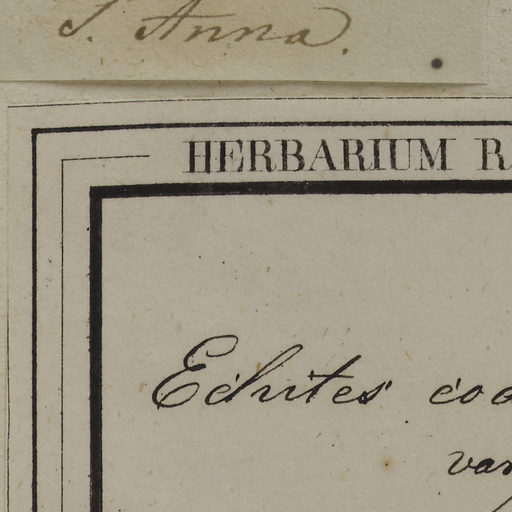 S. Anna.
HERBARIUM R
Echites coa
var